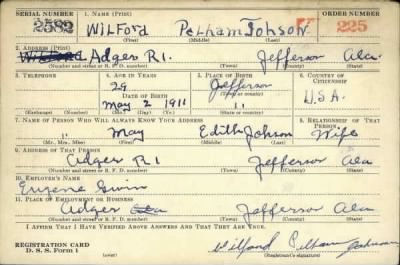 SERIAL NUMBER 1. NAME (Print) ORDER NUMBER
2582 WilFord Pelham Johson 225
(First) (Middle) (Last)
2. ADDRESS (Print)
Adger R1. Jefferson Ala
(Number and street or R. F. D. number) (Town) (County) (State)
3. TELEPHONE 4. AGE IN YEARS 5. PLACE OF BIRTH 6. COUNTRY OF CITIZENSHIP
29 Jefferson
DATE OF BIRTH (Town or county)
May 2 1911 11 U.S.A.
(Exchange) (Number) (Mo.) (Day) (Yr.) (State or country)
7. NAME OF PERSON WHO WILL ALWAYS KNOW YOUR ADDRESS 8. RELATIONSHIP OF THAT PERSON
11 May Edith Johson Wife
(Mr., Mrs., Miss) (First) (Middle) (Last)
9. ADDRESS OF THAT PERSON
Adger R1 Jefferson Ala
(Number and street or R. F. D. number) (Town) (County) (State)
10. EMPLOYER'S NAME
Eugene
11. PLACE OF EMPLOYMENT OR BUSINESS
Adger Jefferson Ala
(Number and street or R. F. D. number) (Town) (County) (State)
I AFFIRM THAT I HAVE VERIFIED ABOVE ANSWERS AND THAT THEY ARE TRUE.
REGISTRATION CARD
D. S. S. Form 1 (over) Wilford Pelham Johnson
(Registrant's signature)